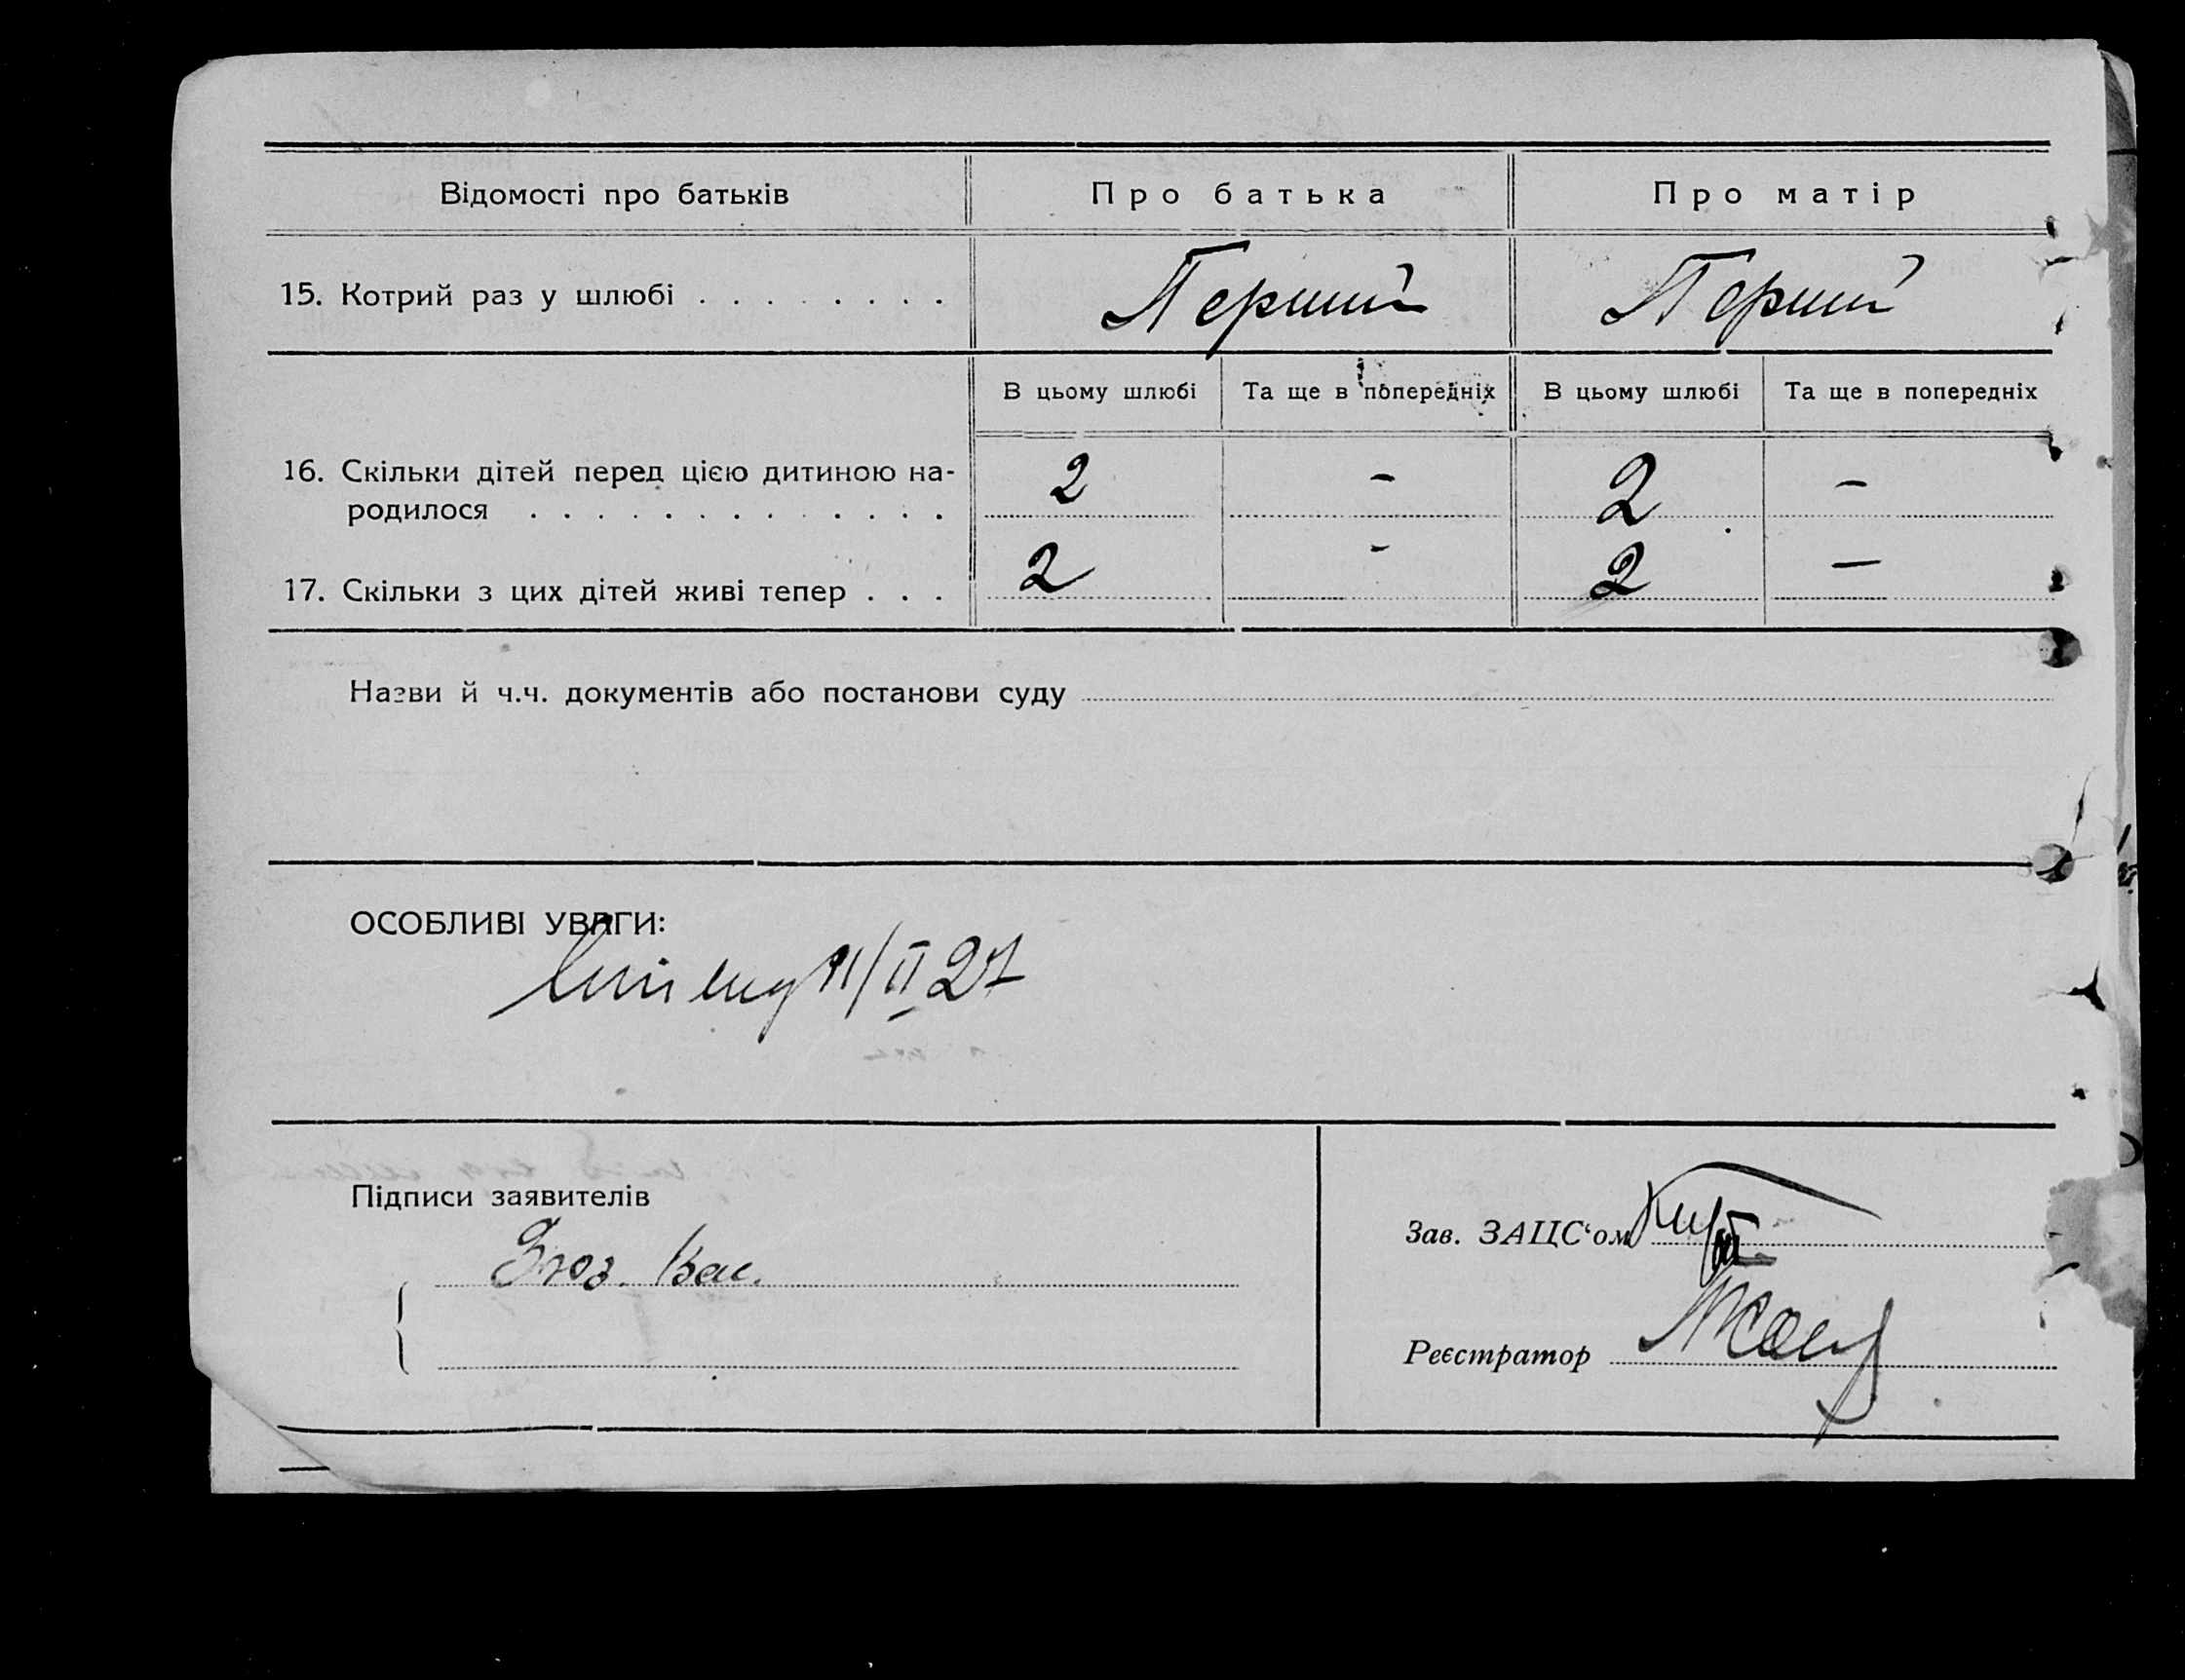 Відомості про батьків Про батька Про матір
15. Котрий раз у шлюбі . . . . . . . . Перший Перший
В цьому шлюбі Та ще в попередніх В цьому шлюбі Та ще в попередніх
16. Скільки дітей перед цією дитиною на-
родилося . . . . . . . . . . . . . 2 - 2 -
17. Скільки з цих дітей живі тепер . . . 2 - 2 -
Назви й ч.ч. документів або постанови суду
ОСОБЛИВІ УВАГИ:
/II 27
Підписи заявителів
Зав. ЗАЦС‘ом
Реєстратор